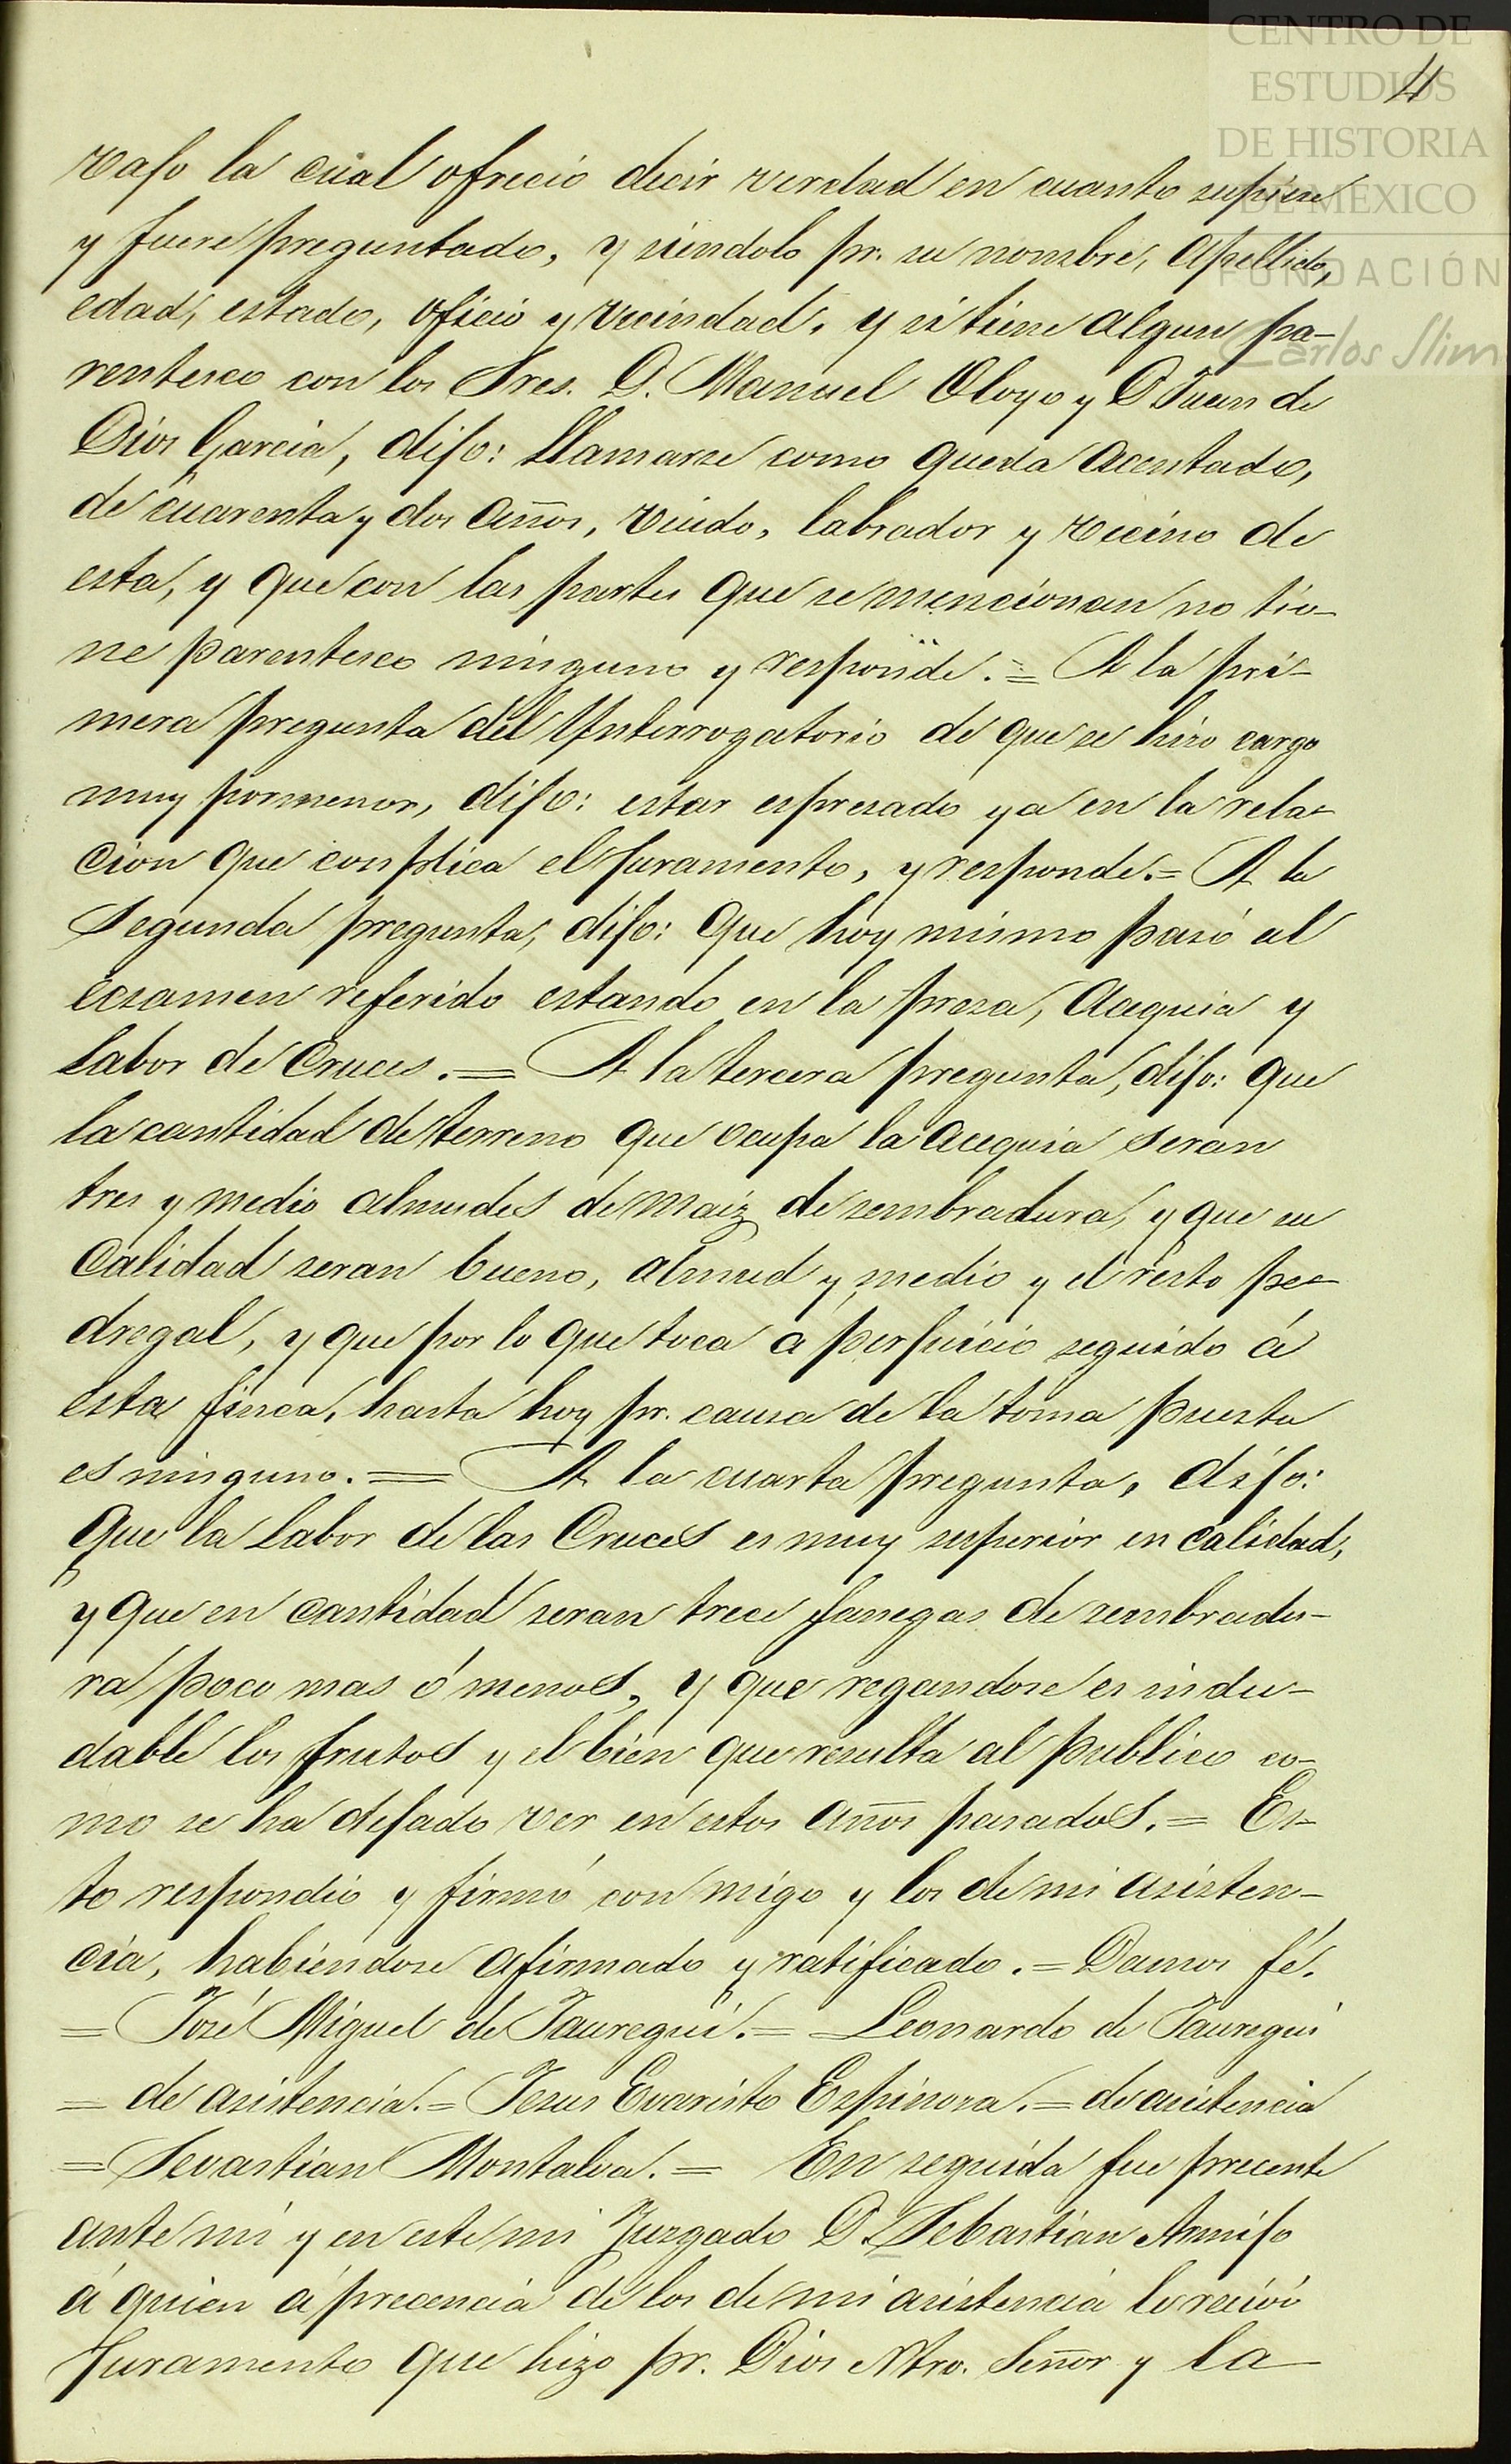 CENTRO DE
ESTUDIOS
DE HISTORIA
DE MÉXICO
FUNDACIÓN
Carlos Slim
4
vajo la cual ofrecio decir verdad en cuanto supiere
y fuere preguntado, y siendolo pr. su nombre, Apellido,
edad, estado, oficio y vecindad, y si tiene algun pa-
rentesco con los Sres. D. Manuel Oloyo y D Juan de
Dios Garcia, dijo: llamarse como queda acentado,
de cuarenta y dos años, viudo, labrador y vecino de
esta, y que con las partes que se mencionan no tie-
ne parentesco ninguno y responde. = A la pri-
mera pregunta del Ynterrogatorio de que se hizo cargo
muy pormenor, dijo: estar espresado ya en la rela-
cion que conplica el juramento, y responde. = A la
Segunda pregunta, dijo: que hoy mismo pasó al
ecsamen referido estando en la presa, Acequia y
labor de Cruces. = A la tercera pregunta, dijo: que
la cantidad de terreno que ocupa la Acequia seran
tres y medio almudes de maiz de sembradura, y que su
Calidad seran bueno, almud y medio y el resto pe-
dregal, y que por lo que toca á perjuicio seguido á
esta finca, hasta hoy pr. causa de la toma puesta
es ninguno. = A la cuarta pregunta, dijo:
que la Labor de las Cruces es muy superior en calidad,
y que en cantidad seran trece fanegas de sembradu-
ra poco mas ó menos, y que regandose es indu-
dable los frutos y el bien que resulta al publico co-
mo se ha dejado ver en estos años pasados. = Es-
to respondió y firmó con migo y los de mi asisten-
cia, habiendose afirmado y ratificado. = Damos fé.
= José Miguel de Jauregui. = Leonardo de Jauregui
= de asistencia. = Jesus Evaristo Espinosa. = de asistencia
= Sevastian Montalva. = En seguida fue precente
ante mi y en este mi Juzgado D. Sebastian Armijo
á quien á precencia de los de mi asistencia le recivi
Juramento que hizo pr. Dios Ntro. Señor y la